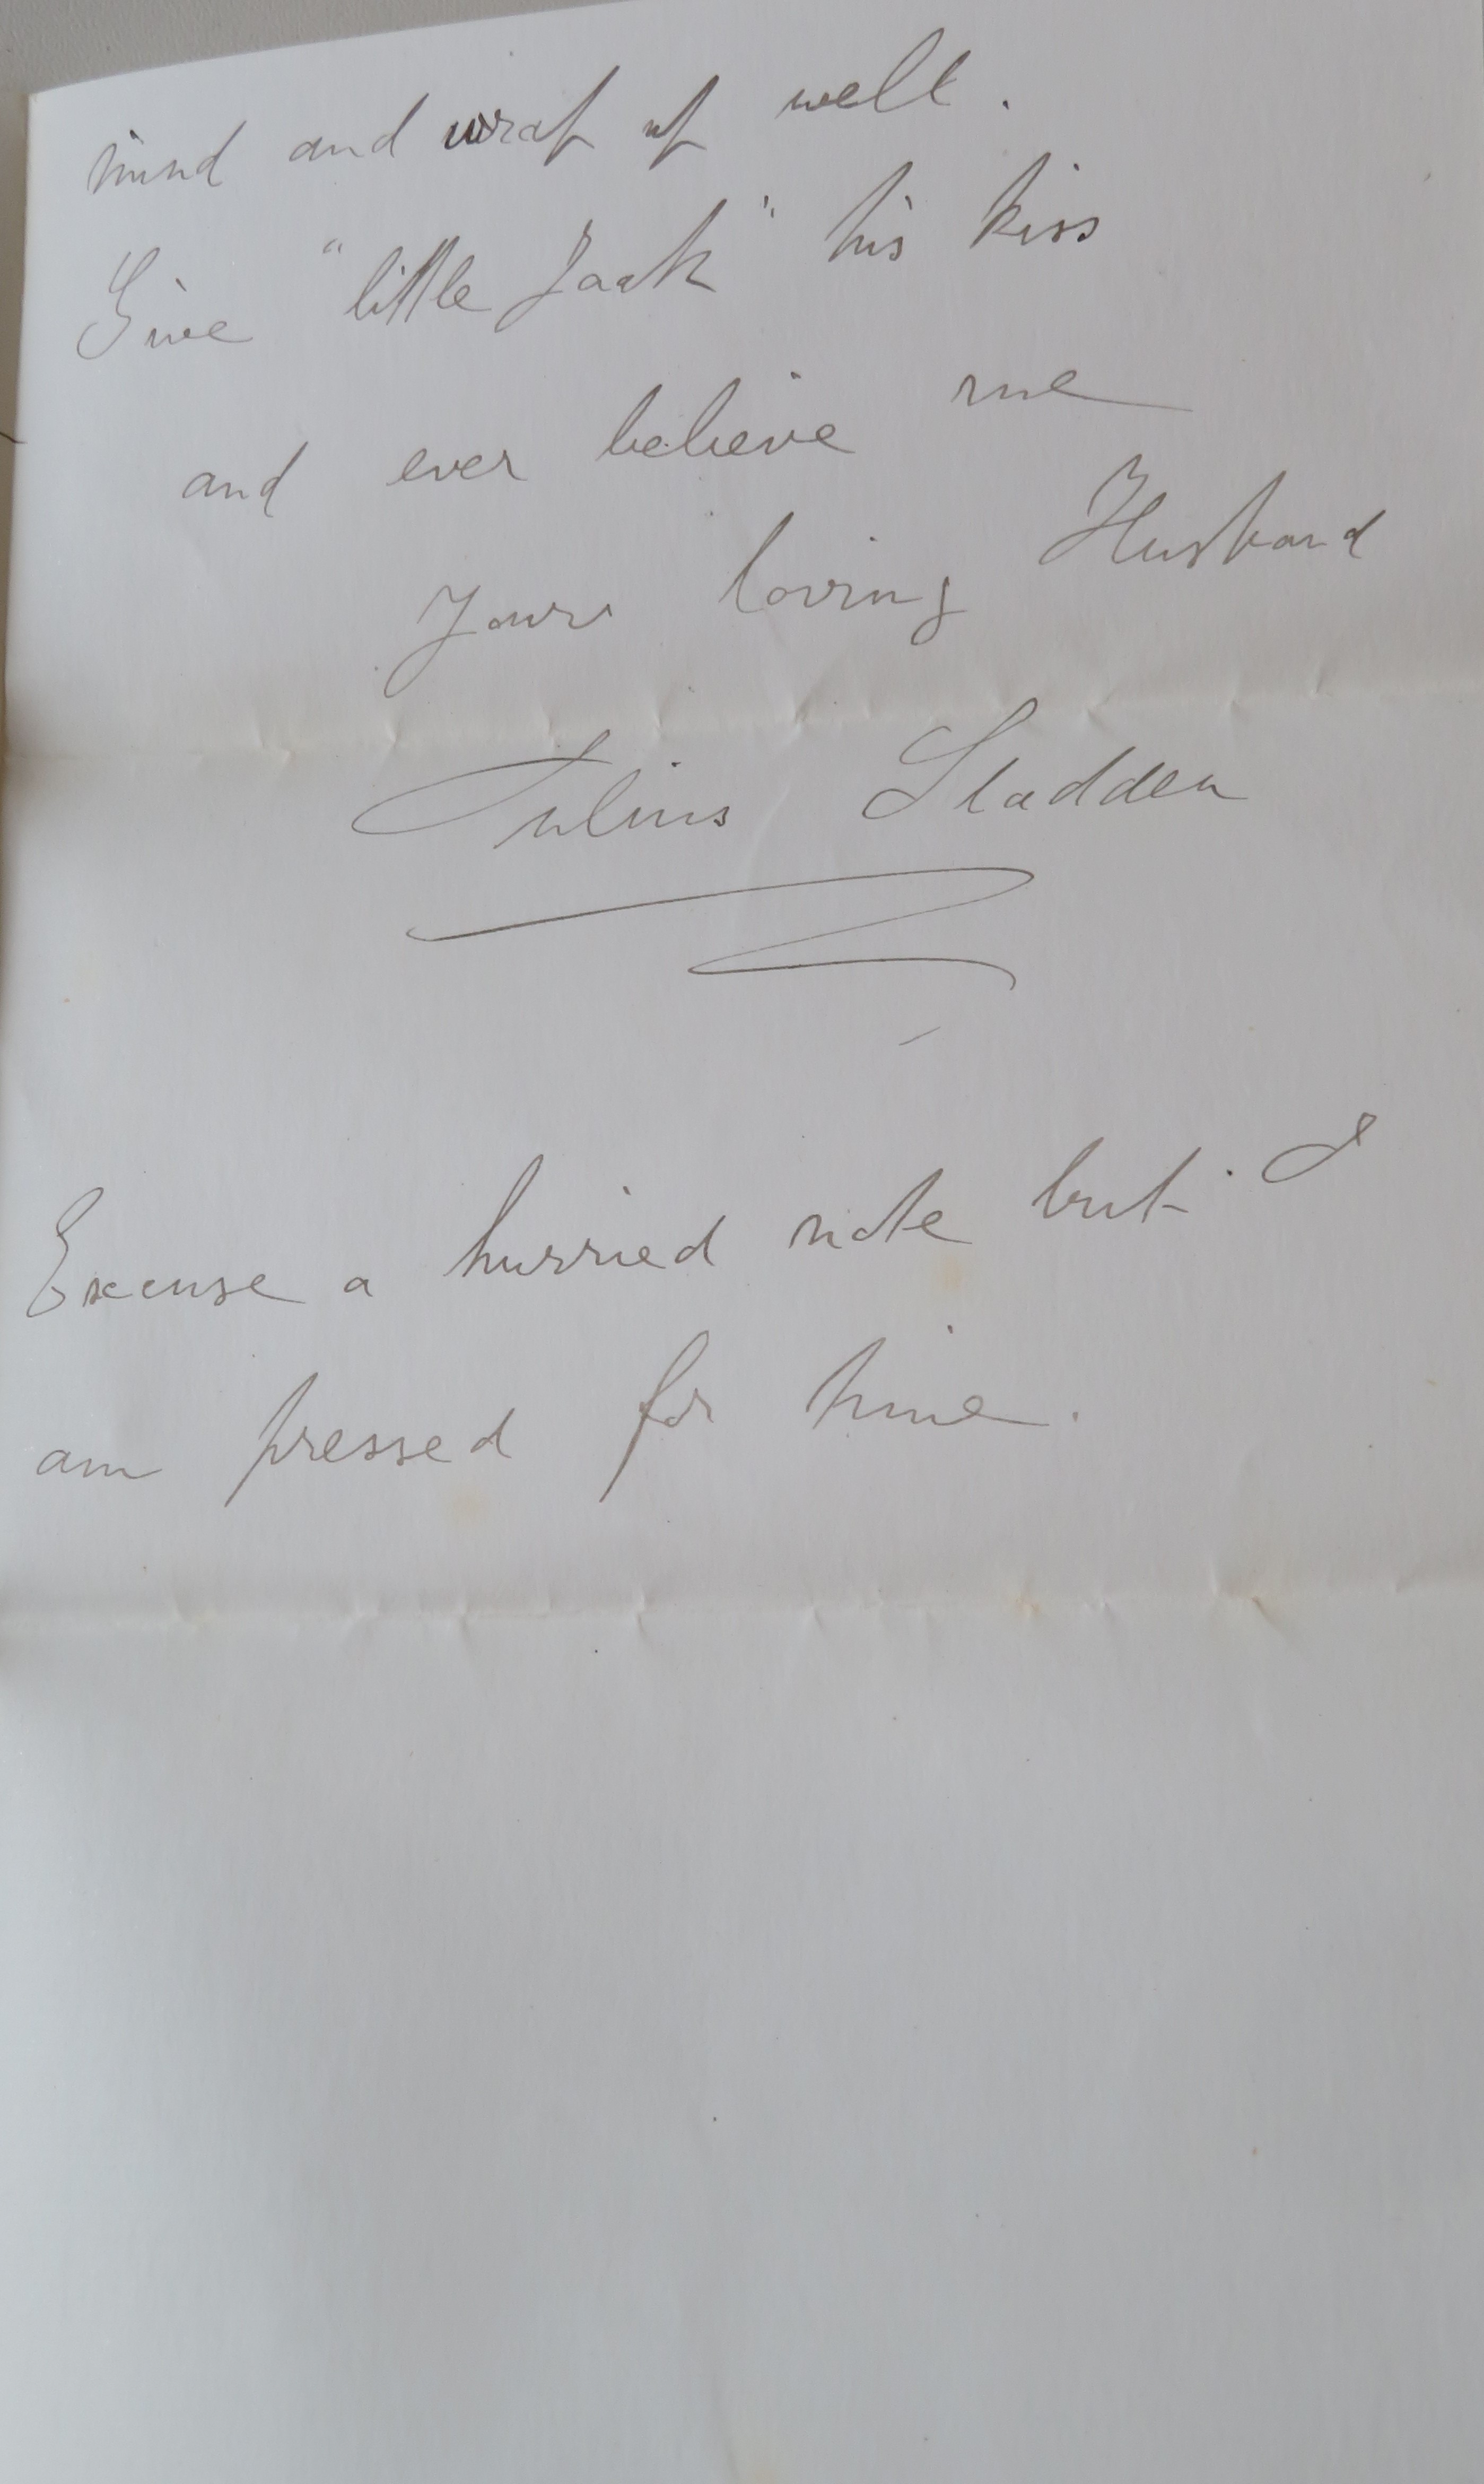 mind and wrap up well.
Give "little Jack" his kiss
and ever believe me
Your loving Husband
Julius Sladden
Excuse a hurried note but I
am pressed for time.